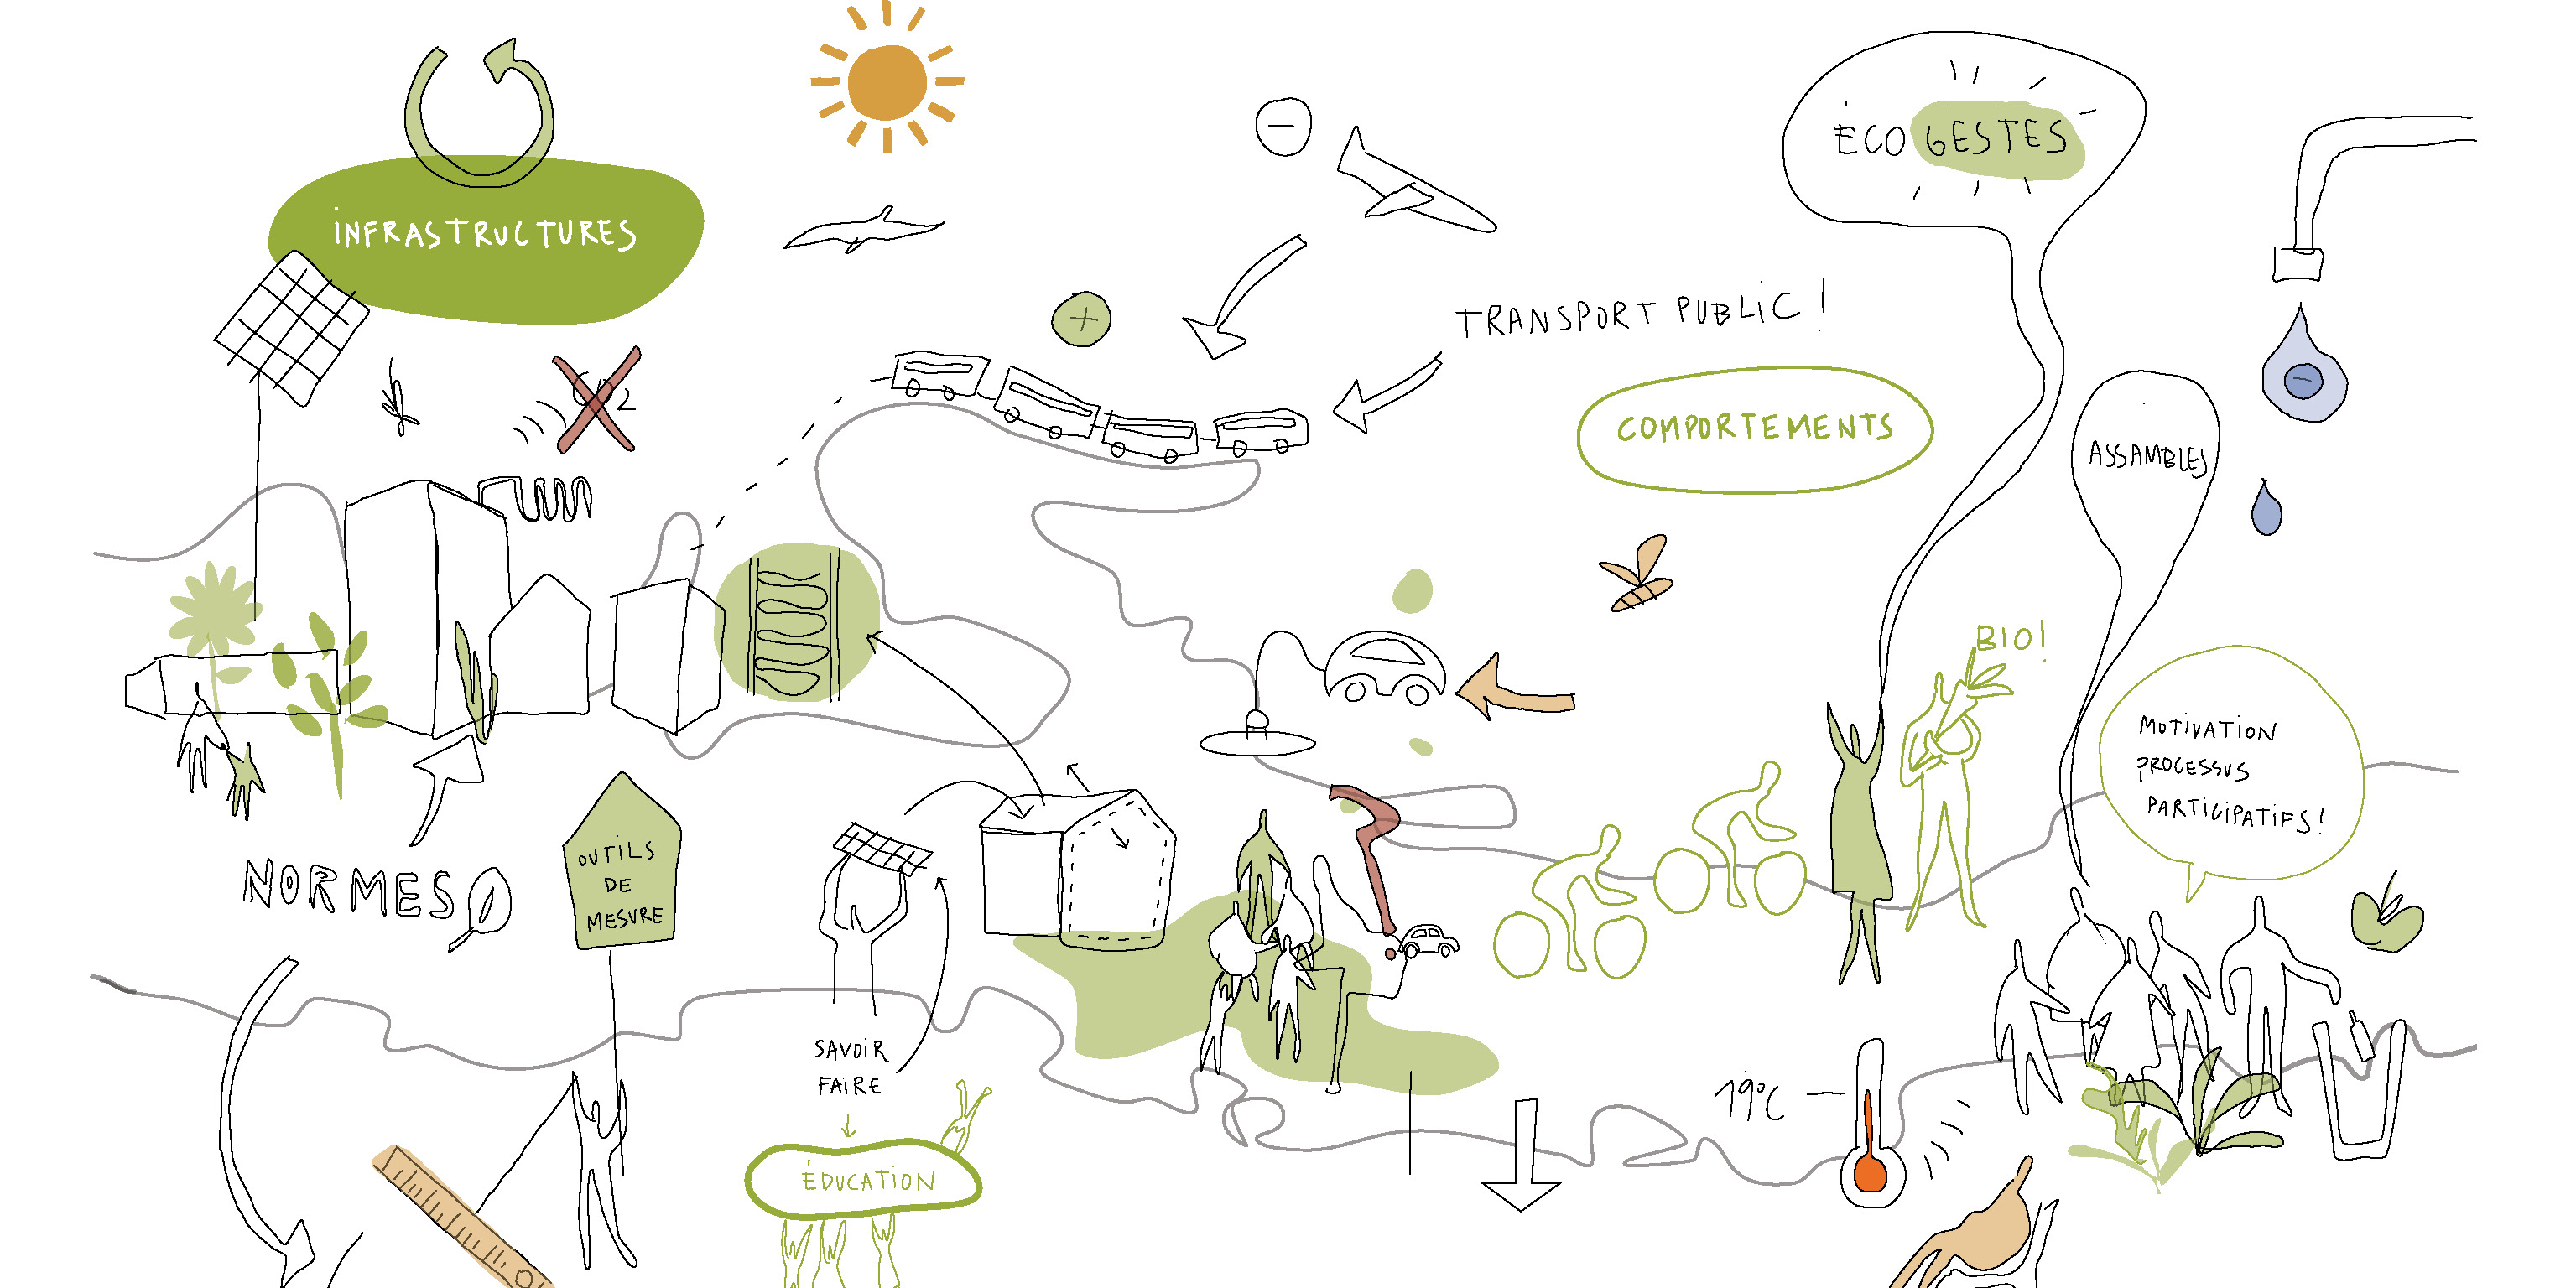 iNFRASTRUCTURES
−
ÉCO GESTES
+
TRANSPORT PUBLiC !
COMPORTEMENTS
ASSAMBLES
BIO!
MOTiVATiON
PROCESSUS
PARTiCiPATiFS!
OUTiLS
DE
MESURE
NORMES
SAVOiR
FAiRE
ÉDUCATiON
19°C